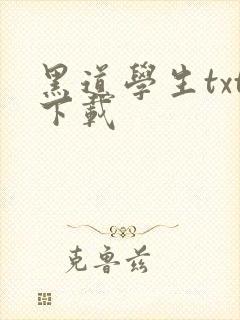 黑道學生txt
下載
克魯茲